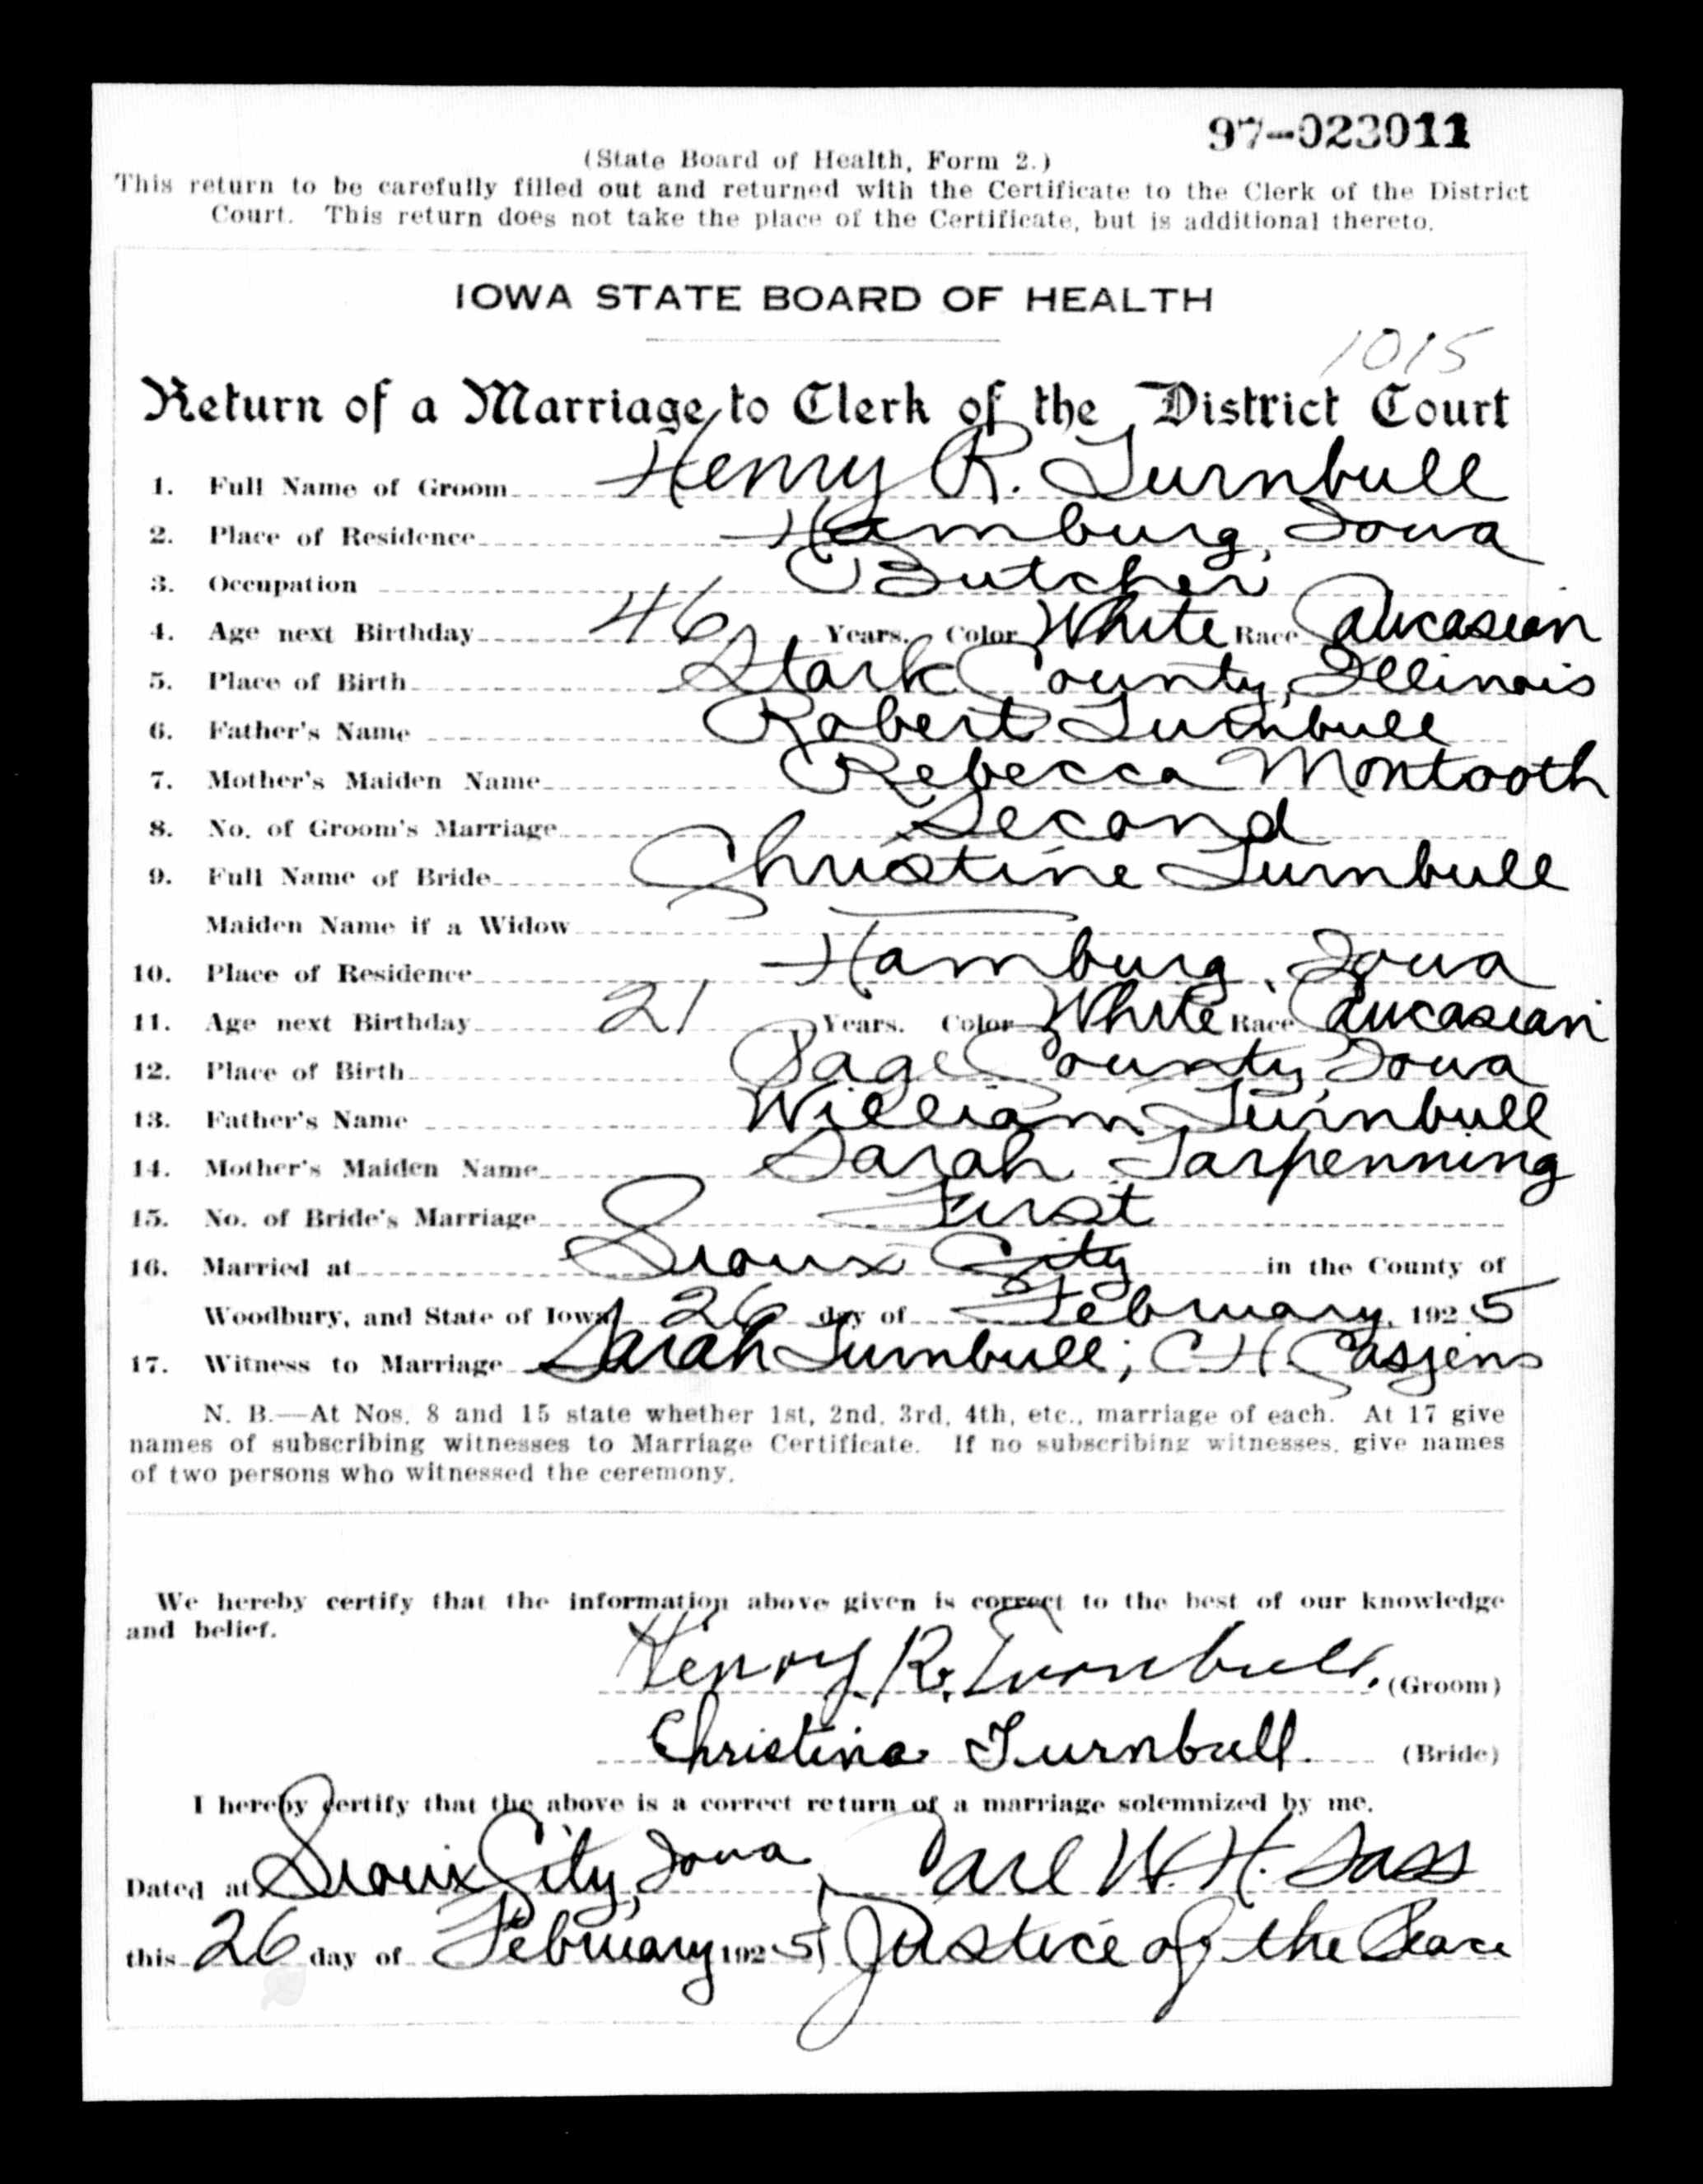 97-023011
(State Board of Health, Form 2.)
This return to be carefully filled out and returned with the Certificate to the Clerk of the District
Court. This return does not take the place of the Certificate, but is additional thereto.
IOWA STATE BOARD OF HEALTH
1015
Return of a Marriage to Clerk of the District Court
1. Full Name of Groom Henry R. Turnbull
2. Place of Residence Hamburg, Iowa
3. Occupation Butcher
4. Age next Birthday 46 Years. Color White Race Caucasian
5. Place of Birth Stark County, Illinois
6. Father's Name Robert Turnbull
7. Mother's Maiden Name Rebecca Montooth
8. No. of Groom's Marriage Second
9. Full Name of Bride Christine Turnbull
Maiden Name if a Widow
10. Place of Residence Hamburg, Iowa
11. Age next Birthday 21 Years. Color White Race Caucasian
12. Place of Birth Page County, Iowa
13. Father's Name William Turnbull
14. Mother's Maiden Name Sarah Tarpenning
15. No. of Bride's Marriage First
16. Married at Sioux City in the County of
Woodbury, and State of Iowa, 26 day of February, 1925
17. Witness to Marriage Sarah Turnbull; C H Casjens
N. B.—At Nos. 8 and 15 state whether 1st, 2nd, 3rd, 4th, etc., marriage of each. At 17 give
names of subscribing witnesses to Marriage Certificate. If no subscribing witnesses, give names
of two persons who witnessed the ceremony.
We hereby certify that the information above given is correct to the best of our knowledge
and belief.
Henry R. Turnbull. (Groom)
Christine Turnbull. (Bride)
I hereby certify that the above is a correct return of a marriage solemnized by me.
Dated at Sioux City, Iowa Carl W. H. Sass
this 26 day of February 1925 Justice of the Peace